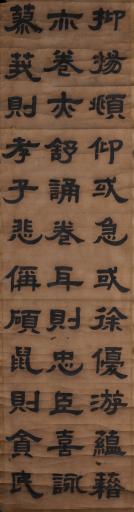 抑揚頫仰或急或徐優游蘊藉
亦卷亦舒誦卷耳則忠臣喜詠
蓼莪則孝子悲偁碩鼠則貪民